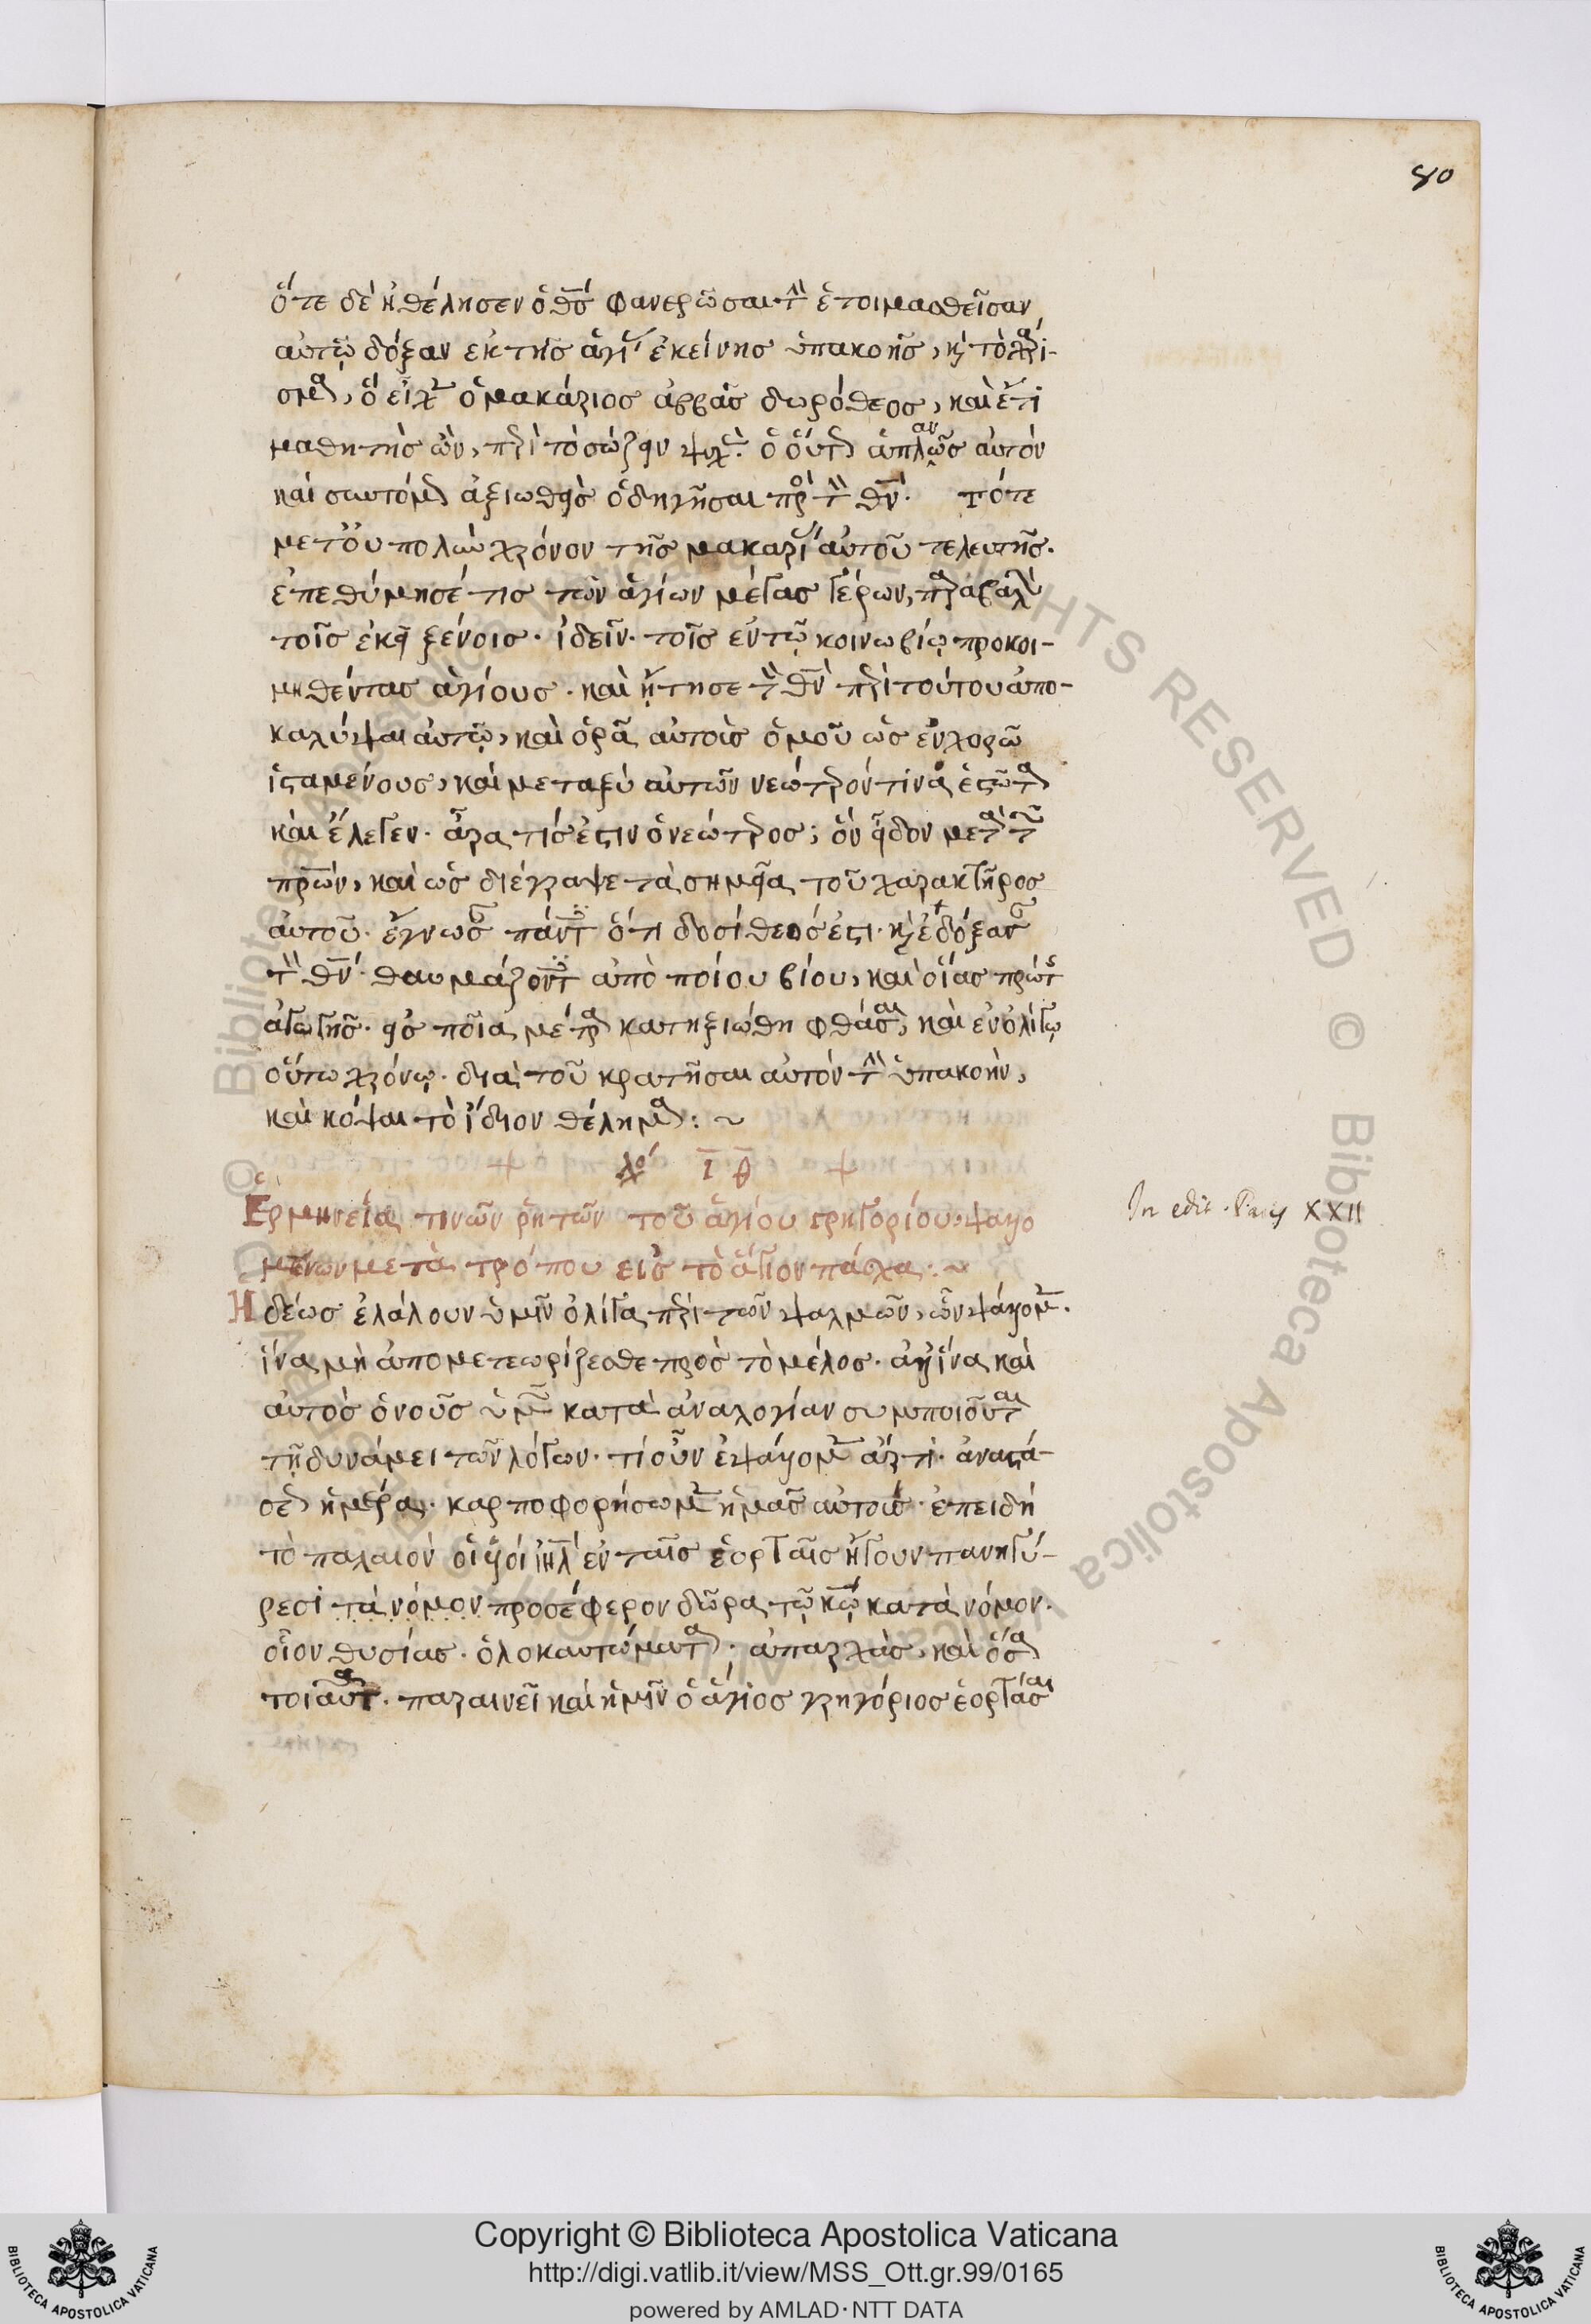 80
ὅτε δὲ ἠθέλησεν ὁ θς φανερῶσαι τὴν ἑτοιμασθεῖσαν
αὐτῷ δόξαν ἐκ τῆς ἁγίας ἐκείνης ὑπακοῆς, καὶ τὸ χάρι-
σμα, ὃ εἶχεν ὁ μακάριος ἀββᾶς δωρόθεος, καὶ ἔτι
μαθητὴς ὤν, περὶ τὸ σώζειν ψυχάς. ὁ οὕτως ἀπλανῶς αὐτὸν
καὶ συντόμως ἀξιωθεὶς ὁδηγῆσαι πρὸς τὸν θν. τότε
μετ' οὐ πολὺν χρόνον τῆς μακαρίας αὐτοῦ τελευτῆς.
ἐπεθύμησέ τις τῶν ἁγίων μέγας γέρων, παραβαλὼν
τοῖς ἐκεῖ ξένοις. ἰδεῖν. τοῖς ἐν τῷ κοινωβίῳ προκοι-
μηθέντας ἁγίους. καὶ ᾔτησε τὸν θν περὶ τούτου ἀπο-
καλύψαι αὐτῷ, καὶ ὁρᾷ αὐτοὺς ὁμοῦ ὡς ἐν χορῷ
ἱσταμένους, καὶ μεταξὺ αὐτῶν νεώτερόν τινα ἑστῶτα
καὶ ἔλεγεν. ἆρα τίς ἐστιν ὁ νεώτερος; ὃν εἶδον μετὰ τῶν
πρων, καὶ ὡς διέγραψε τὰ σημεῖα τοῦ χαρακτῆρος
αὐτοῦ. ἔγνωσαν πάντες ὅτι δοσίθεός ἐστι. καὶ ἐδόξασαν
τὸν θν. θαυμάζοντες ἀπὸ ποίου βίου, καὶ οἵας πρώτης
ἀγωγῆς. εἰς ποῖα μέτρα κατηξιώθη φθάσαι, καὶ ἐν ὀλίγῳ
οὕτω χρόνῳ. διὰ τοῦ κρατῆσαι αὐτὸν τὴν ὑπακοήν,
καὶ κόψαι τὸ ἴδιον θέλημα: ~
λό ΙΘ
Ἑρμηνεία τινῶν ῥητῶν τοῦ ἁγίου γρηγορίου, ψαλλο
μένων μετὰ τρόπου εἰς τὸ ἅγιον πάσχα: ~
In edit. XXII
Ἡδέως ἐλάλουν ὑμῖν ὀλίγα περὶ τῶν ψαλμῶν, ὧν ψάλλομεν.
ἵνα μὴ ἀπομετεωρίζεσθε πρὸς τὸ μέλος. ἀλλ' ἵνα καὶ
αὐτὸς ὁ νοῦς ὑμῶν κατὰ ἀναλογίαν συμποιοῦται
τῇ δυνάμει τῶν λόγων. τί οὖν ἐψάλλομεν ἄρτι. ἀναστά-
σεως ἡμέρα. καρποφορήσωμεν ἡμᾶς αὐτούς. ἐπειδὴ
τὸ παλαιὸν οἱ υἱοὶ ιηλ ἐν ταῖς ἑορταῖς ἤγουν πανηγύ-
ρεσι τὰ νόμον προσέφερον δῶρα τῷ κω κατὰ νόμον.
οἷον θυσίας. ὁλοκαυτώματα. ἀπαρχὰς, καὶ ὅσα
τοιαῦτα. παραινεῖ καὶ ἡμῖν ὁ ἅγιος γρηγόριος ἑορτάσαι
© Biblioteca Apostolica Vaticana
ALL RIGHTS RESERVED
© Biblioteca Apostolica Vaticana
Copyright © Biblioteca Apostolica Vaticana
http://digi.vatlib.it/view/MSS_Ott.gr.99/0165
powered by AMLAD·NTT DATA
BIBLIOTECA APOSTOLICA VATICANA
BIBLIOTECA APOSTOLICA VATICANA